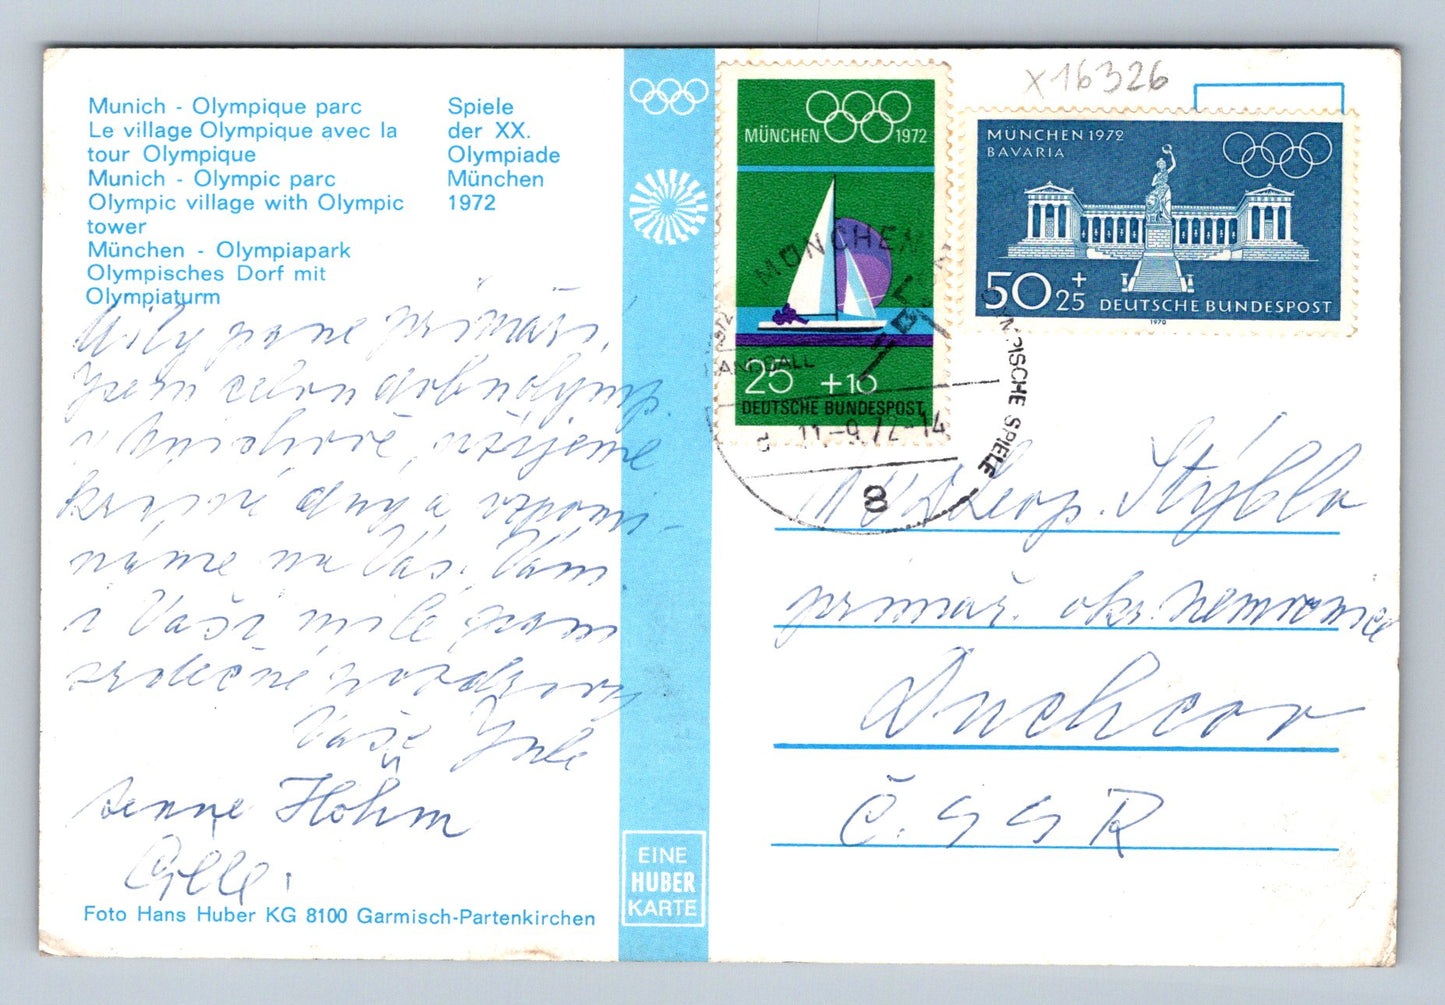 Munich - Olympique parc
Le village Olympique avec la
tour Olympique
Munich - Olympic parc
Olympic village with Olympic
tower
München - Olympiapark
Olympisches Dorf mit
Olympiaturm
Spiele
der XX.
Olympiade
München
1972
Milý pane primáři,
jsem celou dobu olymp.
v Mnichově, užíjeme
krásné dny a vzpomí-
náme na Vás. Vám
i Vaší milé paní
srdečné pozdravy
Vaše
Hohm
Foto Hans Huber KG 8100 Garmisch-Partenkirchen
EINE
HUBER
KARTE
MÜNCHEN 1972
25 +10
DEUTSCHE BUNDESPOST
MÜNCHEN 1972
BAVARIA
50 + 25
DEUTSCHE BUNDESPOST
1970
X16326
MÜNCHEN
HANDBALL
11.-9.72-14
8
OLYMPISCHE SPIELE
MUDr Leop. Stýblo
primář. okr. nemocnice
Duchcov
Č.SSR